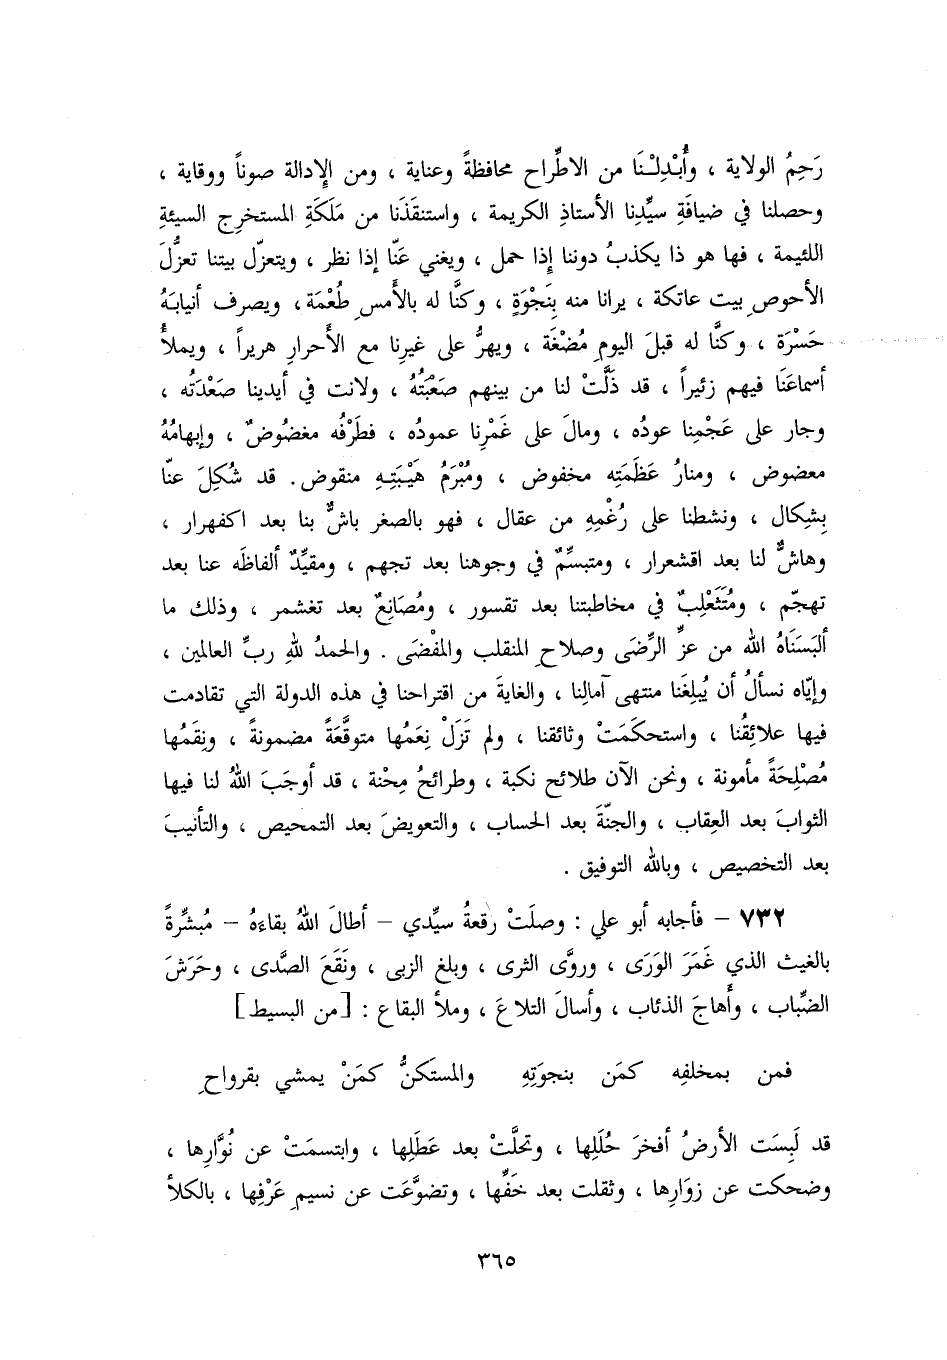 رَحِمُ الولاية ، وأُبْدِلْنَا من الاطِّراح محافظةً وعناية ، ومن الإدالة صوناً ووقاية ،
وحصلنا في ضيافَةِ سيِّدنا الأستاذِ الكريمة ، واستنقَذَنا من مَلَكَةِ المستخرِج السيئةِ
اللئيمة ، فها هو ذا يكذبُ دوننا إِذا حمل ، ويغني عَنّا إذا نظر ، ويتعزّل بيتنا تعزُّلَ
الأحوصِ بيت عاتكة ، يرانا منه بِنَجْوَةٍ ، وكنَّا له بالأَمسِ طُعْمَة ، ويصرف أنيابَهُ
حَسْرَة ، وكنَّا له قبلَ اليومِ مُضْغَة ، ويهرُّ على غيرِنا مع الأَحرارِ هريراً ، ويملأُ
أسماعَنَا فيهم زئيراً ، قد ذَلَّتْ لنا من بينهم صَعْبَتُهُ ، ولانت في أيدينا صَعْدَتُه ،
وجار على عَجْمِنا عودُه ، ومالَ على غَمْرِنا عمودُه ، فطَرْفُه مغضُوضٌ ، وإبهامُهُ
معضوض ، ومنارُ عَظَمَتِه مخفوض ، ومُبْرَمُ هَيْبَتِهِ منقوض . قد شُكِلَ عنّا
بِشِكال ، ونشطنا على رُغْمِهِ من عقال ، فهو بالصغر باشٌّ بنا بعد اكفهرار ،
وهاشٌّ لنا بعد اقشعرار ، ومتبسِّمٌ في وجوهنا بعد تجهم ، ومقيِّدٌ ألفاظَه عنا بعد
تهجّم ، ومُتَثَعْلِبٌ في مخاطبتنا بعد تقسور ، ومُصَانِعٌ بعد تغشمر ، وذلك ما
ألبَسَنَاهُ الله من عزِّ الرِّضَى وصلاحِ المنقلب والمفْضَى . والحمدُ للهِ ربِّ العالمين ،
وإيّاه نسألُ أن يُبلِغَنا منتهى آمالِنا ، والغايةَ من اقتراحنا في هذه الدولة التي تقادمت
فيها علائِقُنا ، واستحكَمَتْ وثائقنا ، ولم تَزَلْ نِعَمُها متوقَّعَةً مضمونةً ، ونِقَمُها
مُصْلِحَةً مأمونة ، ونحن الآن طلائح نكبة ، وطرائحُ مِحْنة ، قد أوجَبَ اللهُ لنا فيها
الثوابَ بعد العِقاب ، والجنّةَ بعد الحساب ، والتعويضَ بعد التمحيص ، والتأنيبَ
بعد التخصيص ، وبالله التوفيق .
٧٣٢ – فأجابه أبو علي : وصلَتْ رقعةُ سيِّدي – أطالَ اللهُ بقاءَهُ – مُبشِّرةً
بالغيث الذي غَمَرَ الوَرَى ، وروَّى الثرى ، وبلغ الزبى ، ونَقَعَ الصَّدى ، وحَرَشَ
الضِّباب ، وأَهاجَ الذئاب ، وأسالَ التلاعَ ، وملأ البقاع : [من البسيط]
فمن بمخلفِه كمَن بنجوَتِهِ والمستَكنُّ كمَنْ يمشي بقرواحِ
قد لَبِسَت الأرضُ أفخرَ حُلَلِها ، وتحلَّتْ بعد عَطَلِها ، وابتسمَتْ عن نُوَّارِها ،
وضحكت عن زوَارِها ، وثقلت بعد خَفِّها ، وتضوَّعَت عن نسيمِ عَرْفِها ، بالكلأ
٣٦٥